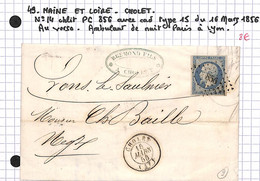 49. MAINE ET LOIRE - CHOLET.
N°14 oblit PC 856 avec cad type 15 du 16 Mars 1856
Au verso. Ambulant de nuit Paris à Lyon.
8€
Lons le Saulnier
Monsieur Ch. Baille
Négt
CHOLET
16
MARS